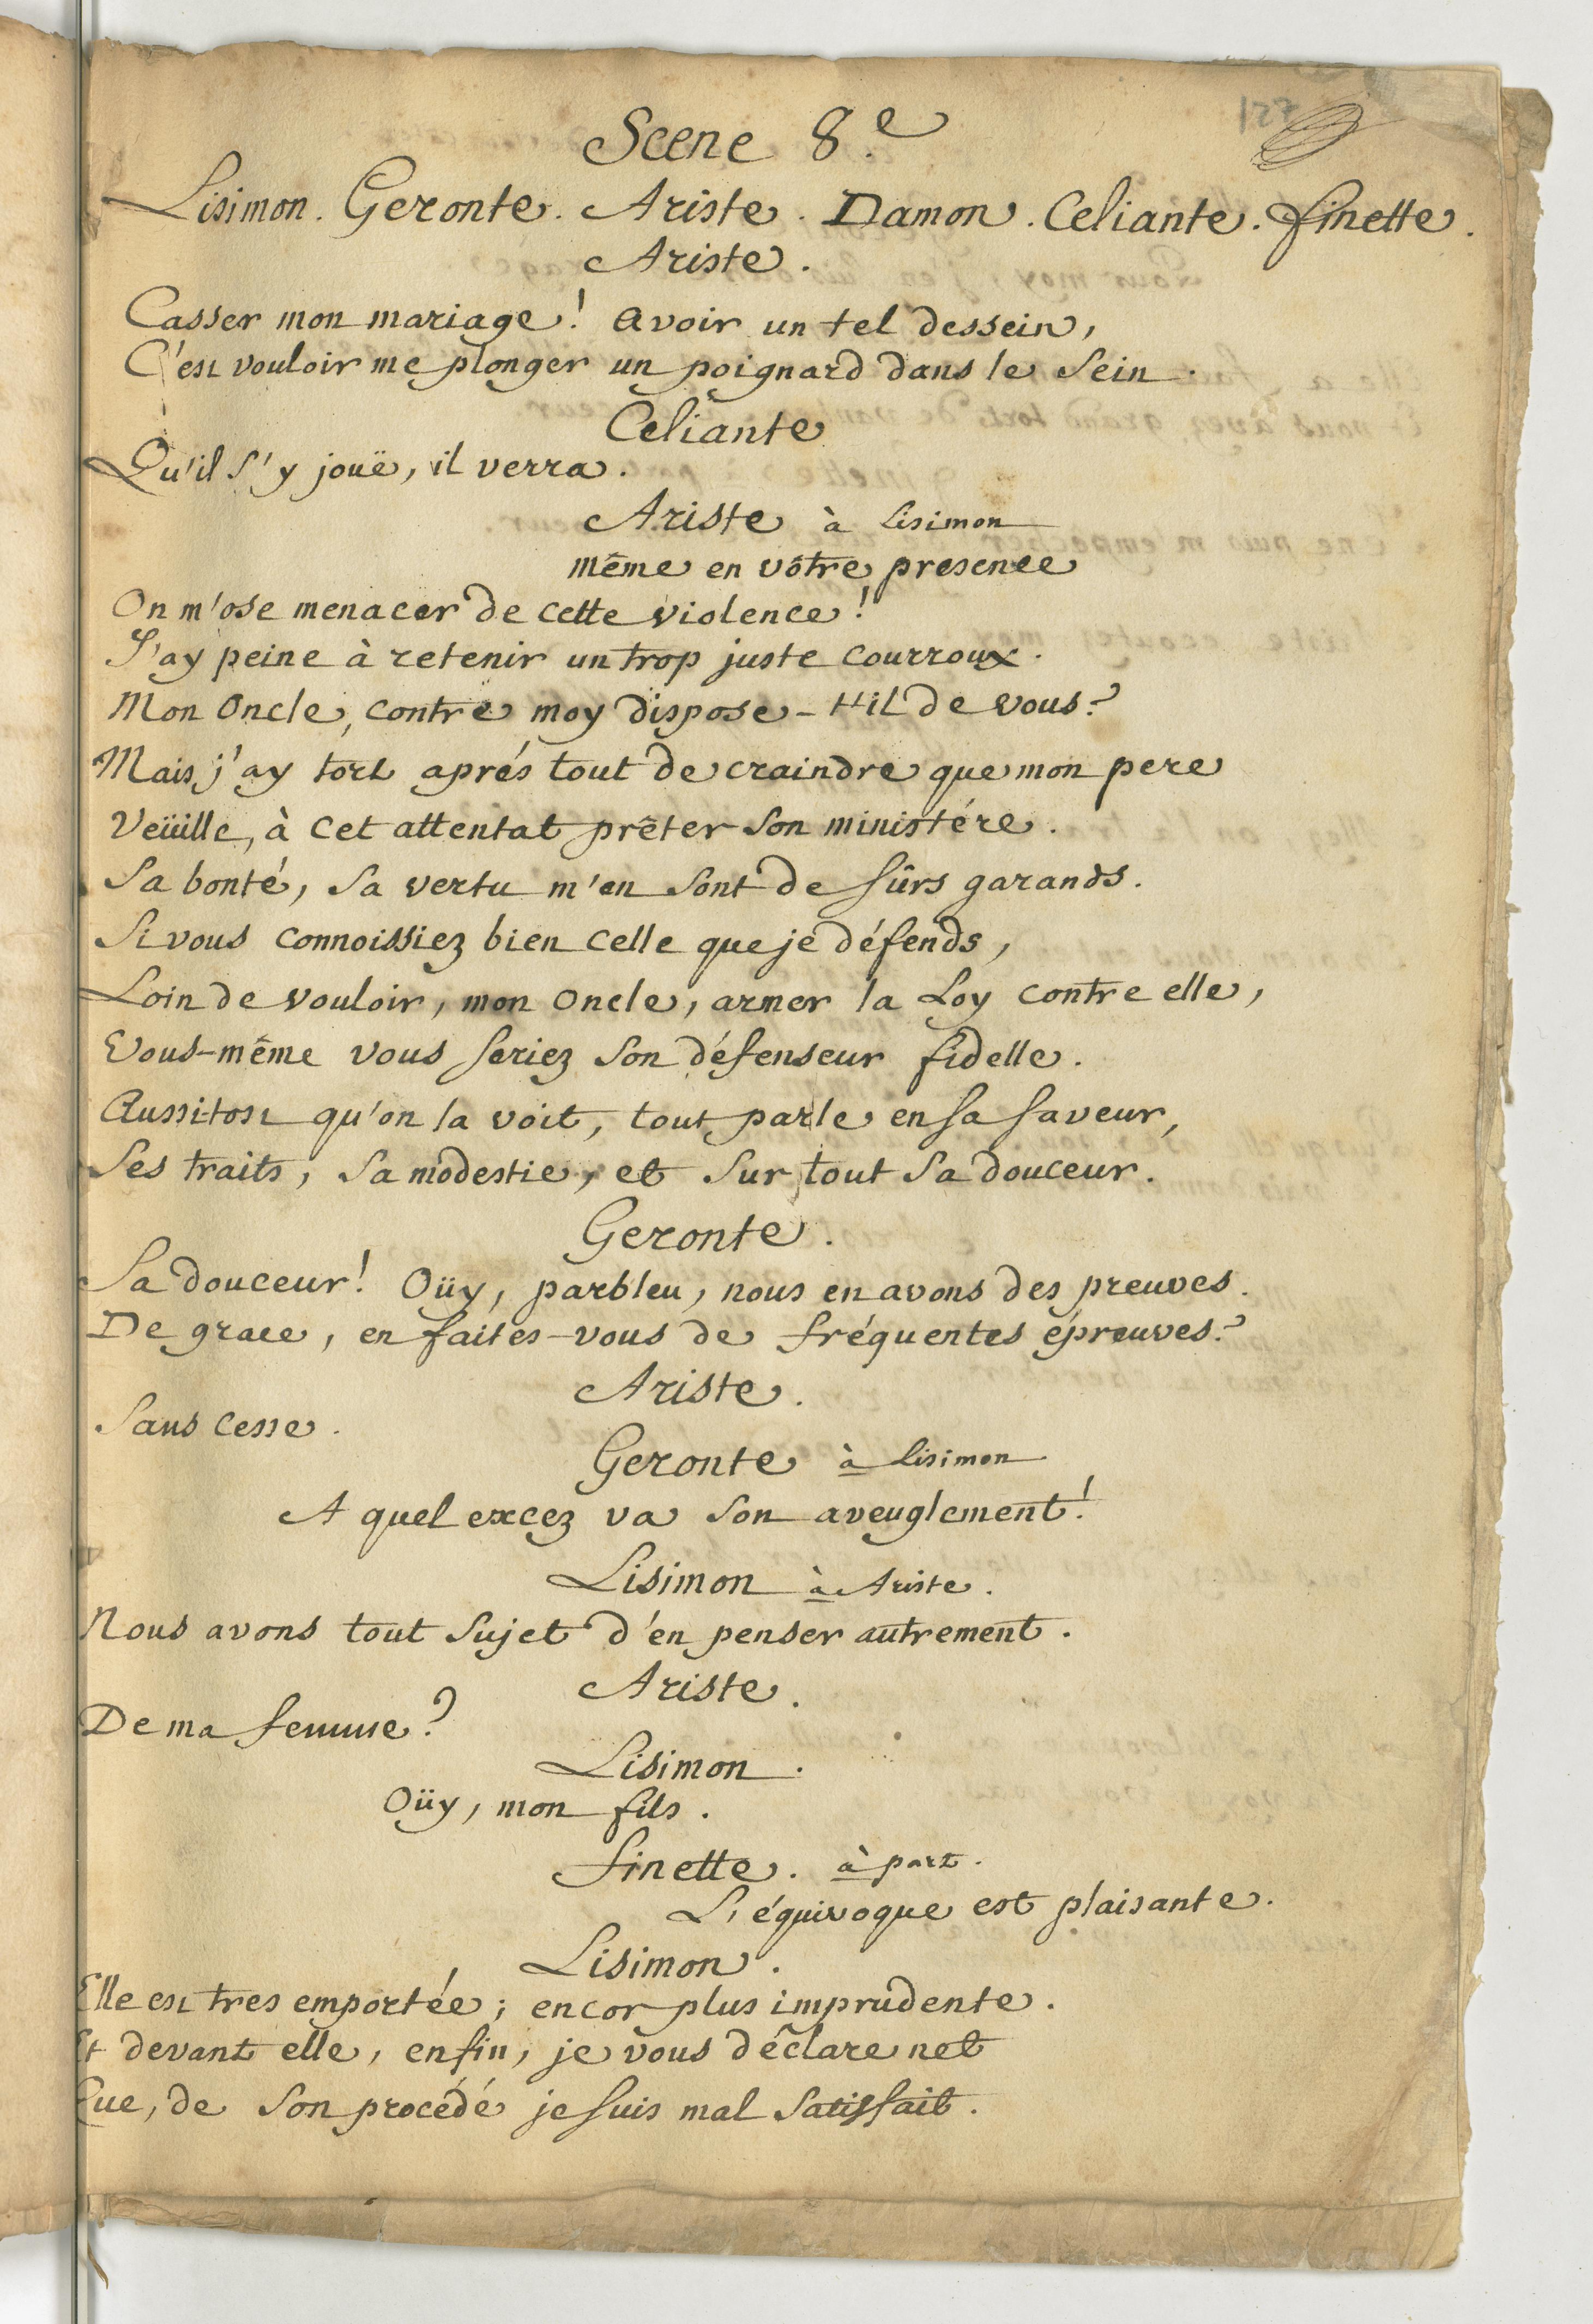 157
Scene 8.e
Lisimon. Geronte. Ariste. Damon. Celiante. finette.
Ariste.
Casser mon mariage! Avoir un tel dessein,
C'est vouloir me plonger un poignard dans le Sein.
Celiante
Qu'il s'y jouë, il verra.
Ariste à Lisimon
même en vôtre presence
On m'ose menacer de cette violence!
J'ay peine à retenir un trop juste courroux.
Mon Oncle, contre moy dispose-t-il de vous?
Mais j'ay tort aprés tout de craindre que mon pere
Veüille, à cet attentat prêter son ministére.
Sa bonté, sa vertu m'en sont de sûrs garands.
Si vous connoissiez bien celle que je défends,
Loin de vouloir, mon Oncle, armer la Loy contre elle,
Vous-même vous seriez son défenseur fidelle.
Aussi-tost qu'on la voit, tout parle en sa faveur,
Ses traits, sa modestie, et sur tout sa douceur.
Geronte.
Sa douceur! Oüy, parbleu, nous en avons des preuves.
De grace, en faites-vous de fréquentes épreuves?
Ariste.
Sans cesse.
Geronte à Lisimon
A quel excez va son aveuglement!
Lisimon à Ariste.
Nous avons tout sujet d'en penser autrement.
Ariste.
De ma femme?
Lisimon.
Oüy, mon fils.
finette. à part.
L'équivoque est plaisante.
Lisimon.
Elle est tres emportée; encor plus imprudente.
Et devant elle, enfin, je vous déclare net
Que, de son procédé je suis mal satisfait.